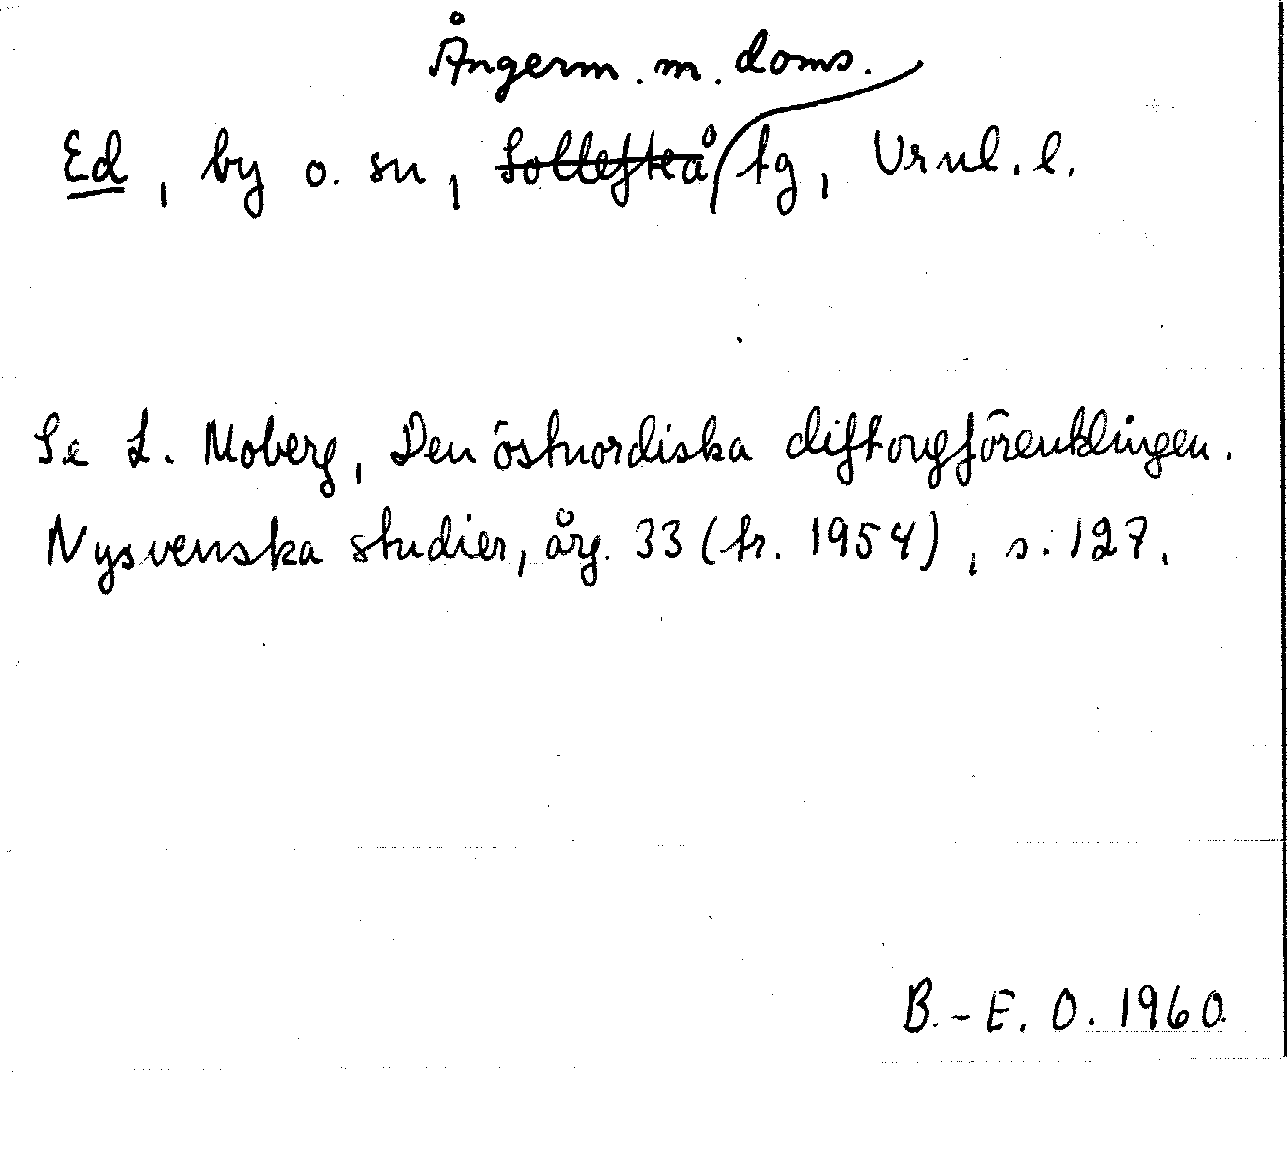 Ångerm. m. doms.
Ed, by o. sn, Sollefteå tg, Vrnl. l.
Se L. Moberg, Den östnordiska diftongförenklingen.
Nysvenska studier, årg. 33 (tr. 1954), s. 127.
B.-E. O. 1960